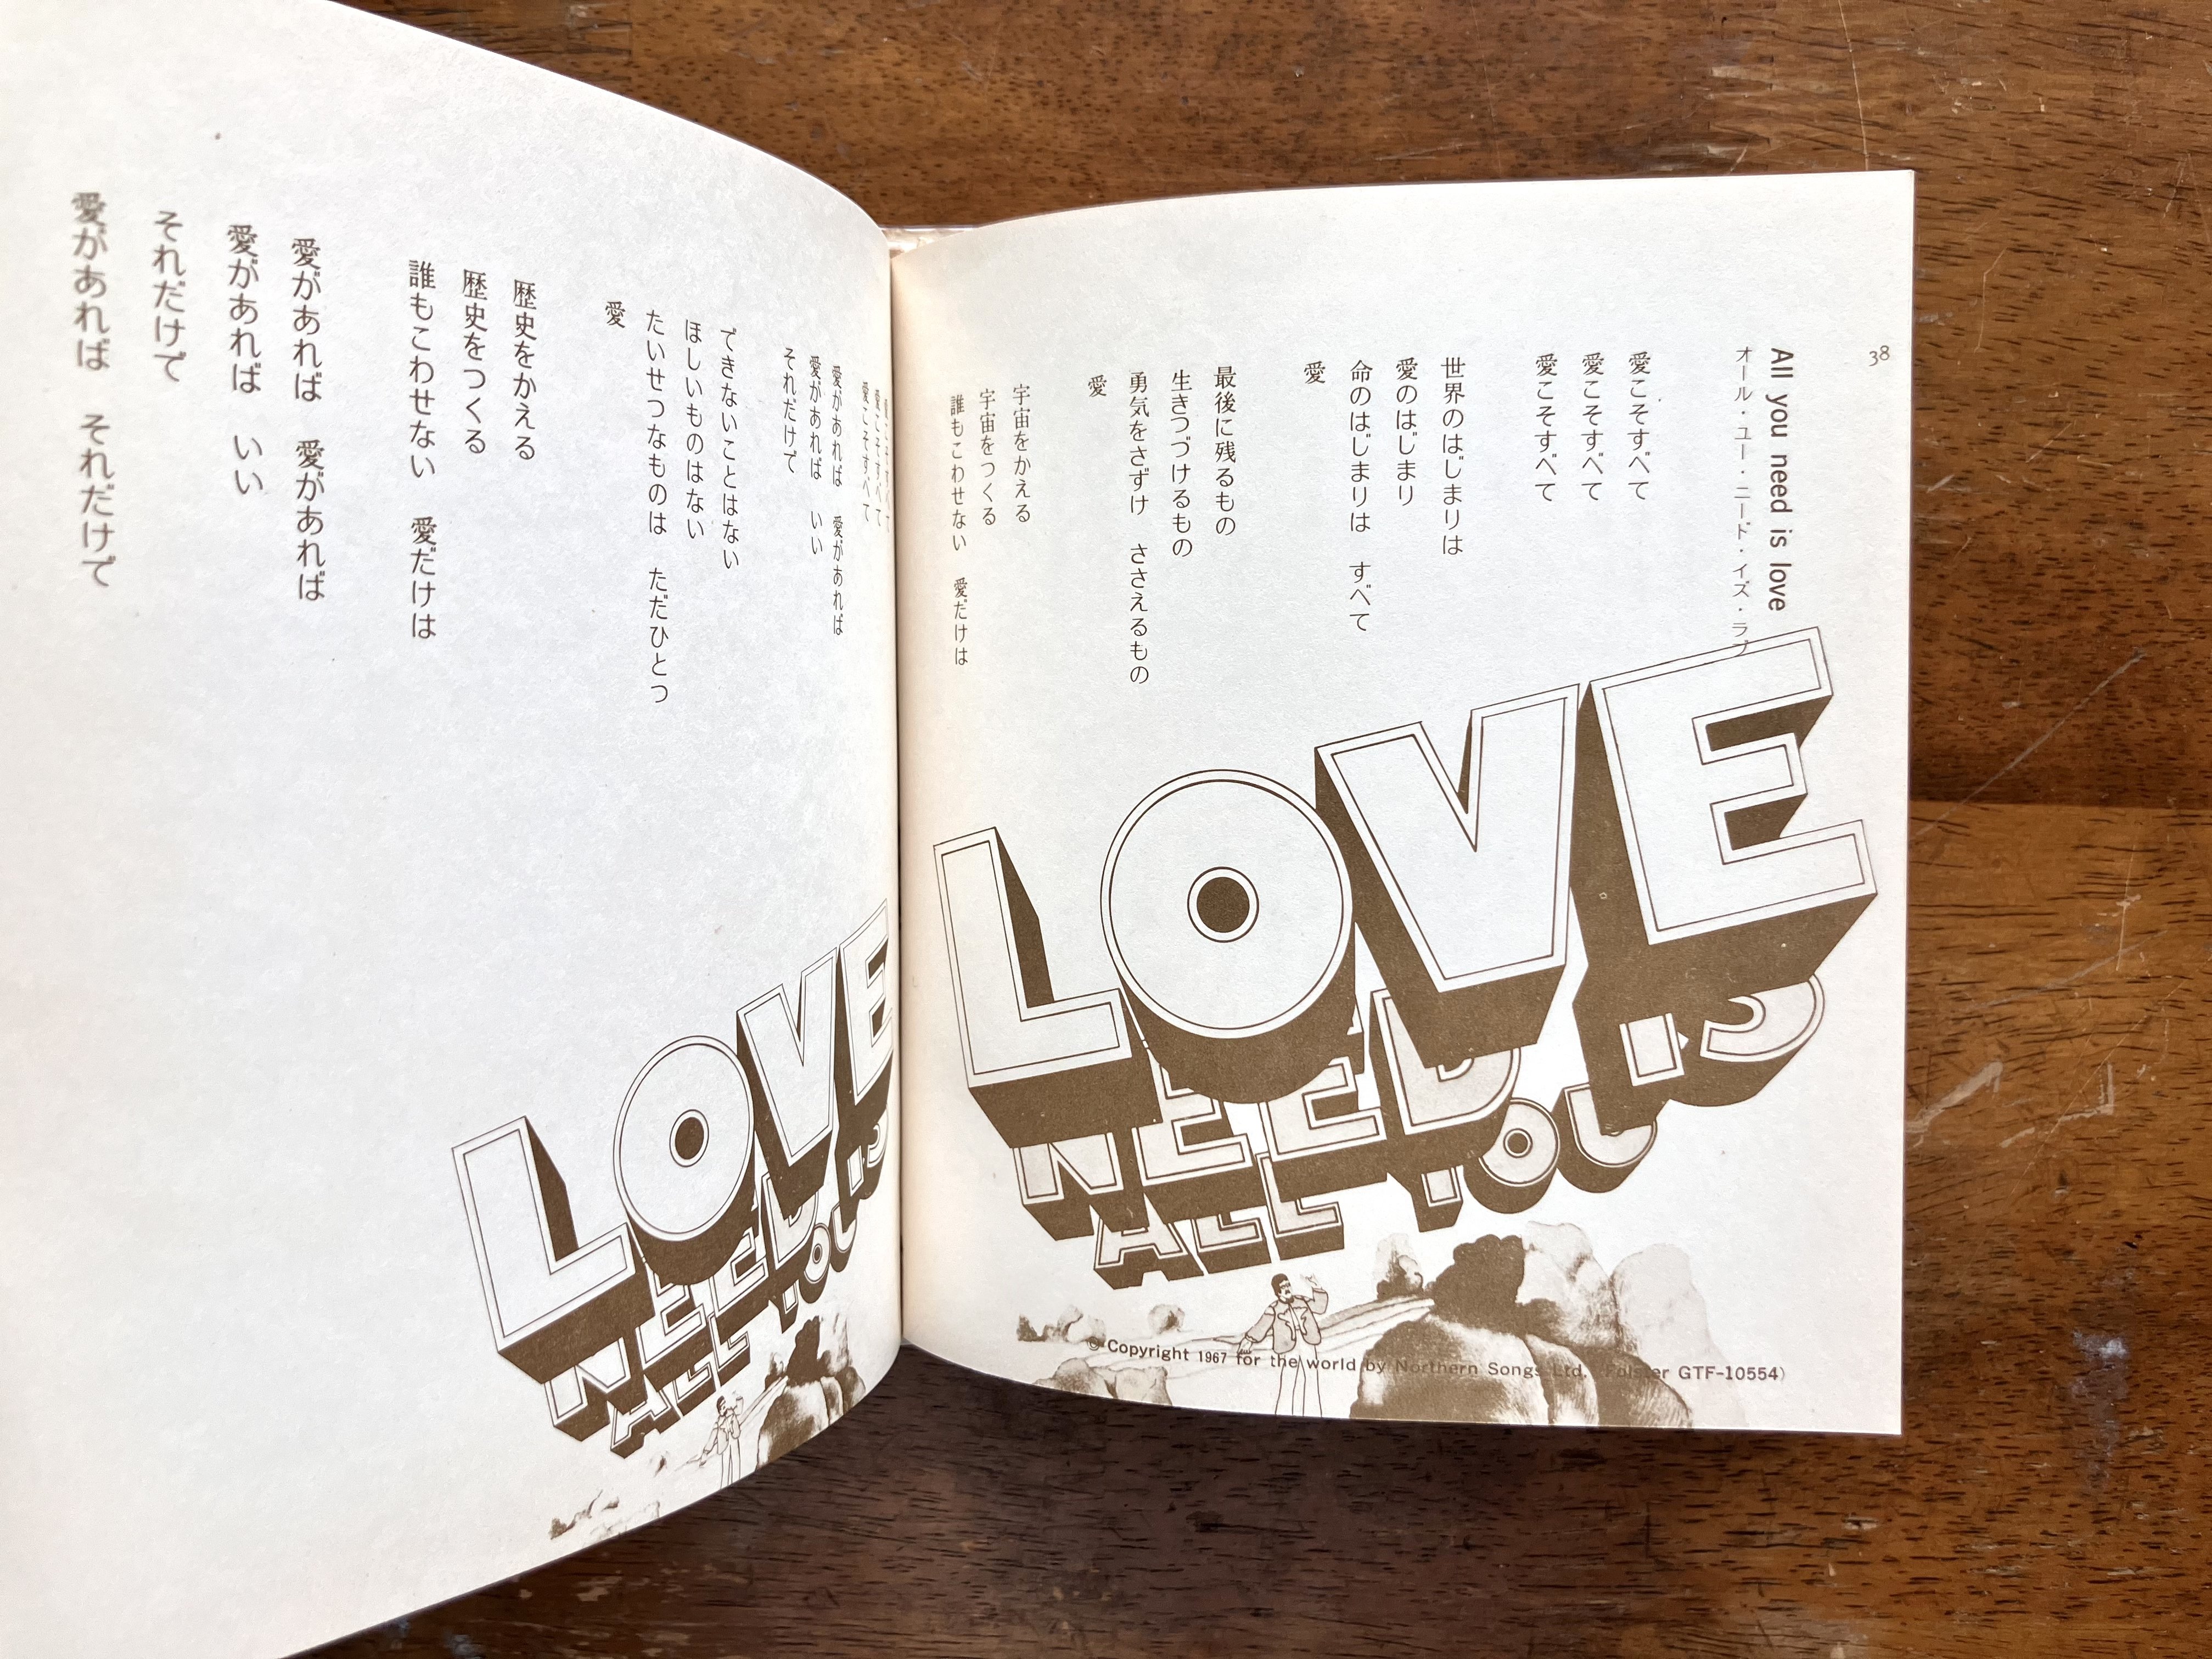 38
All you need is love
オール・ユー・ニード・イズ・ラブ
愛こそすべて
愛こそすべて
愛こそすべて
世界のはじまりは
愛のはじまり
命のはじまりは　すべて
愛
最後に残るもの
生きつづけるもの
勇気をさずけ　ささえるもの
愛
宇宙をかえる
宇宙をつくる
誰もこわせない　愛だけは
LOVE
NEED IS
ALL YOU
© Copyright 1967 for the world by Northern Songs Ltd. GTF-10554)
愛こそすべて
愛こそすべて
愛があれば　愛があれば
愛があれば　いい
それだけで
できないことはない
ほしいものはない
たいせつなものは　ただひとつ
愛
歴史をかえる
歴史をつくる
誰もこわせない　愛だけは
愛があれば　愛があれば
愛があれば　いい
それだけで
愛があれば　それだけで
LOVE
NEED IS
ALL YOU